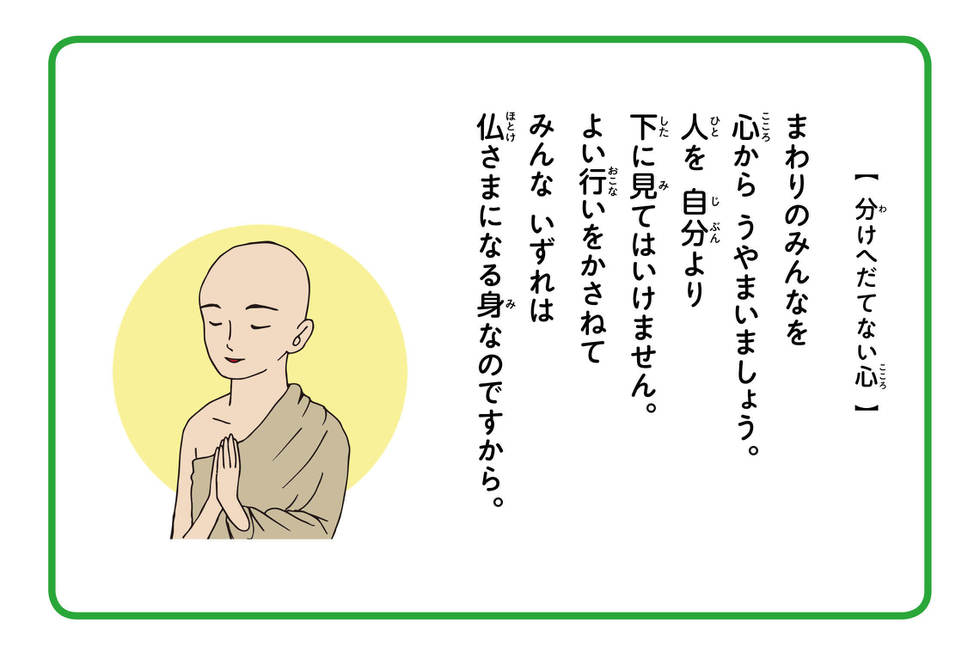 【分けへだてない心】
まわりのみんなを
心から うやまいましょう。
人を 自分より
下に見てはいけません。
よい行いをかさねて
みんな いずれは
仏さまになる身なのですから。